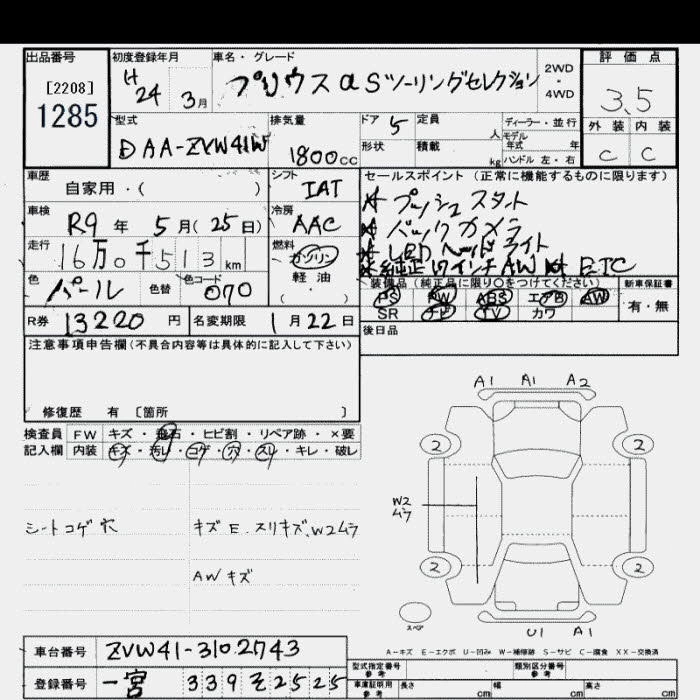 出品番号 初度登録年月 車名・グレード 評価点
[2208]
1285
H24 3月
プリウスαSツーリングセレクション
2WD・4WD
3.5
外装 内装
C C
型式 排気量 ドア 5 定員 人 ディーラー・並行
モデル年式 年
DAA-ZVW41W 1800cc 形状 積載 kg ハンドル 左・右
車歴 シフト セールスポイント(正常に機能するものに限ります)
自家用・( ) IAT
* プッシュスタート
車検 冷房
R9年 5月(25日) AAC
* バックカメラ
走行 燃料
16万0千513km ガソリン
* LEDヘッドライト
* 純正17インチAW * ETC
色 色替 色コード 軽油
パール 070 (・)
装備品(純正品に限り○をつけてください) 新車保証書
PS PW ABS エアB AW 有・無
SR ナビ TV カワ
R券 13220円 名変期限 1月22日
後日品
注意事項申告欄(不具合内容等は具体的に記入して下さい)
修復歴 有 〔箇所 〕
検査員 FW キズ・飛石・ヒビ割・リペア跡・×要
記入欄 内装 キズ・汚レ・コゲ・穴・スレ・キレ・破レ
シートコゲ穴 キズE.スリキズ、W2ムラ
AWキズ
A1 A1 A2
2 2
W2
ムラ
2 2
スペア
U1 A1
A-キズ E-エクボ U-凹み W-補修跡 S-サビ C-腐食 XX-交換済
車台番号 ZVW41-3102743
登録番号 一宮 339そ2525
型式指定番号 参考 類別区分番号 参考
車庫証明用 参考 長さ cm 幅 cm 高さ cm